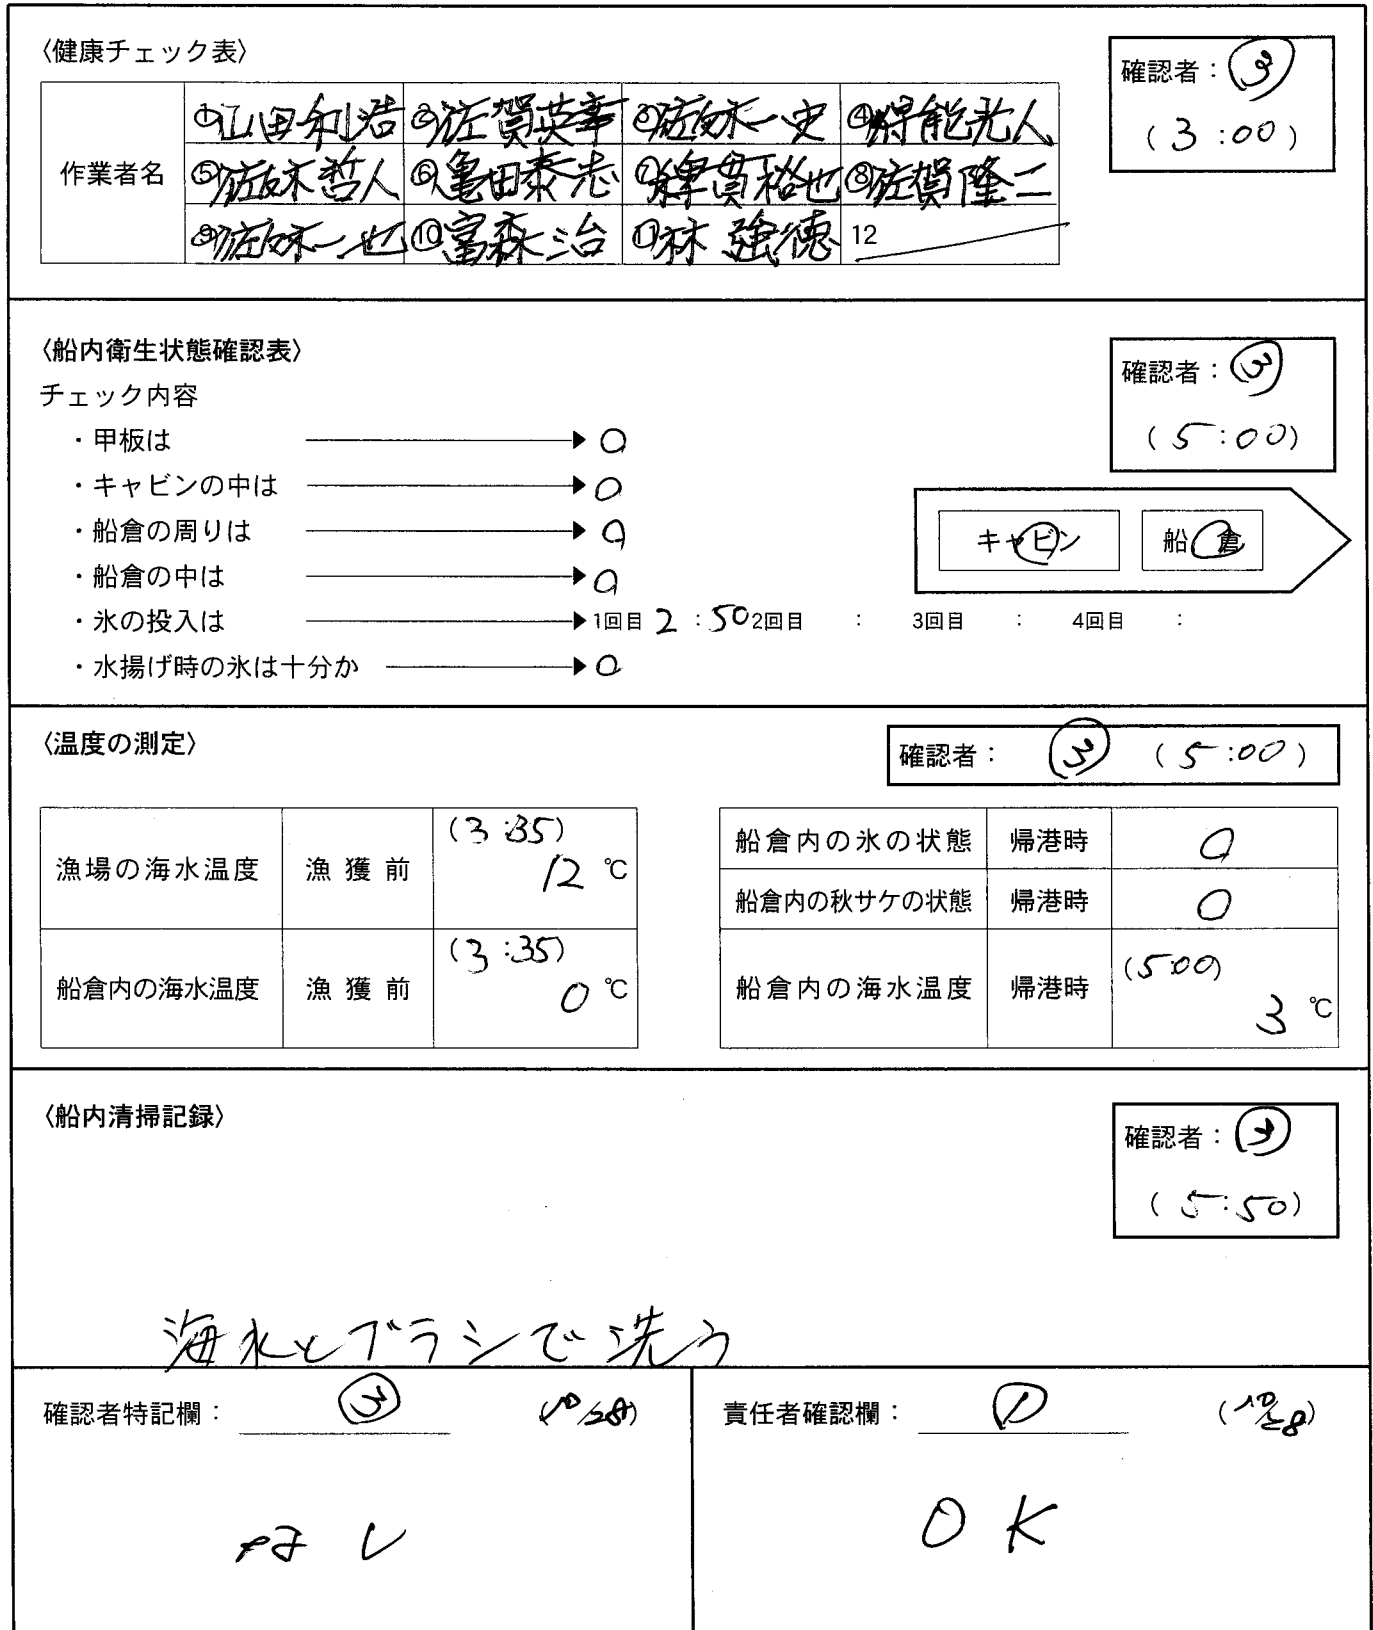 〈健康チェック表〉
確認者：③
(3:00)
作業者名
①山田利浩 ②佐賀英幸 ③佐々木一史 ④得能光人
⑤佐々木哲人 ⑥亀田泰志 ⑦津貫裕也 ⑧佐賀隆二
⑨佐々木一也 ⑩富森治 ⑪林強徳 12
〈船内衛生状態確認表〉
確認者：③
(5:00)
チェック内容
・甲板は ○
・キャビンの中は ○
・船倉の周りは ○
・船倉の中は ○
キャビン 船倉
・氷の投入は 1回目 2:50 2回目 : 3回目 : 4回目 :
・水揚げ時の氷は十分か ○
〈温度の測定〉
確認者： ③ (5:00)
漁場の海水温度 漁獲前 (3:35) 12 ℃
船倉内の海水温度 漁獲前 (3:35) 0 ℃
船倉内の氷の状態 帰港時 ○
船倉内の秋サケの状態 帰港時 ○
船倉内の海水温度 帰港時 (5:00) 3 ℃
〈船内清掃記録〉
確認者：③
(5:50)
海水とブラシで洗う
確認者特記欄： ③ (10/28)
なし
責任者確認欄： ① (10/28)
OK